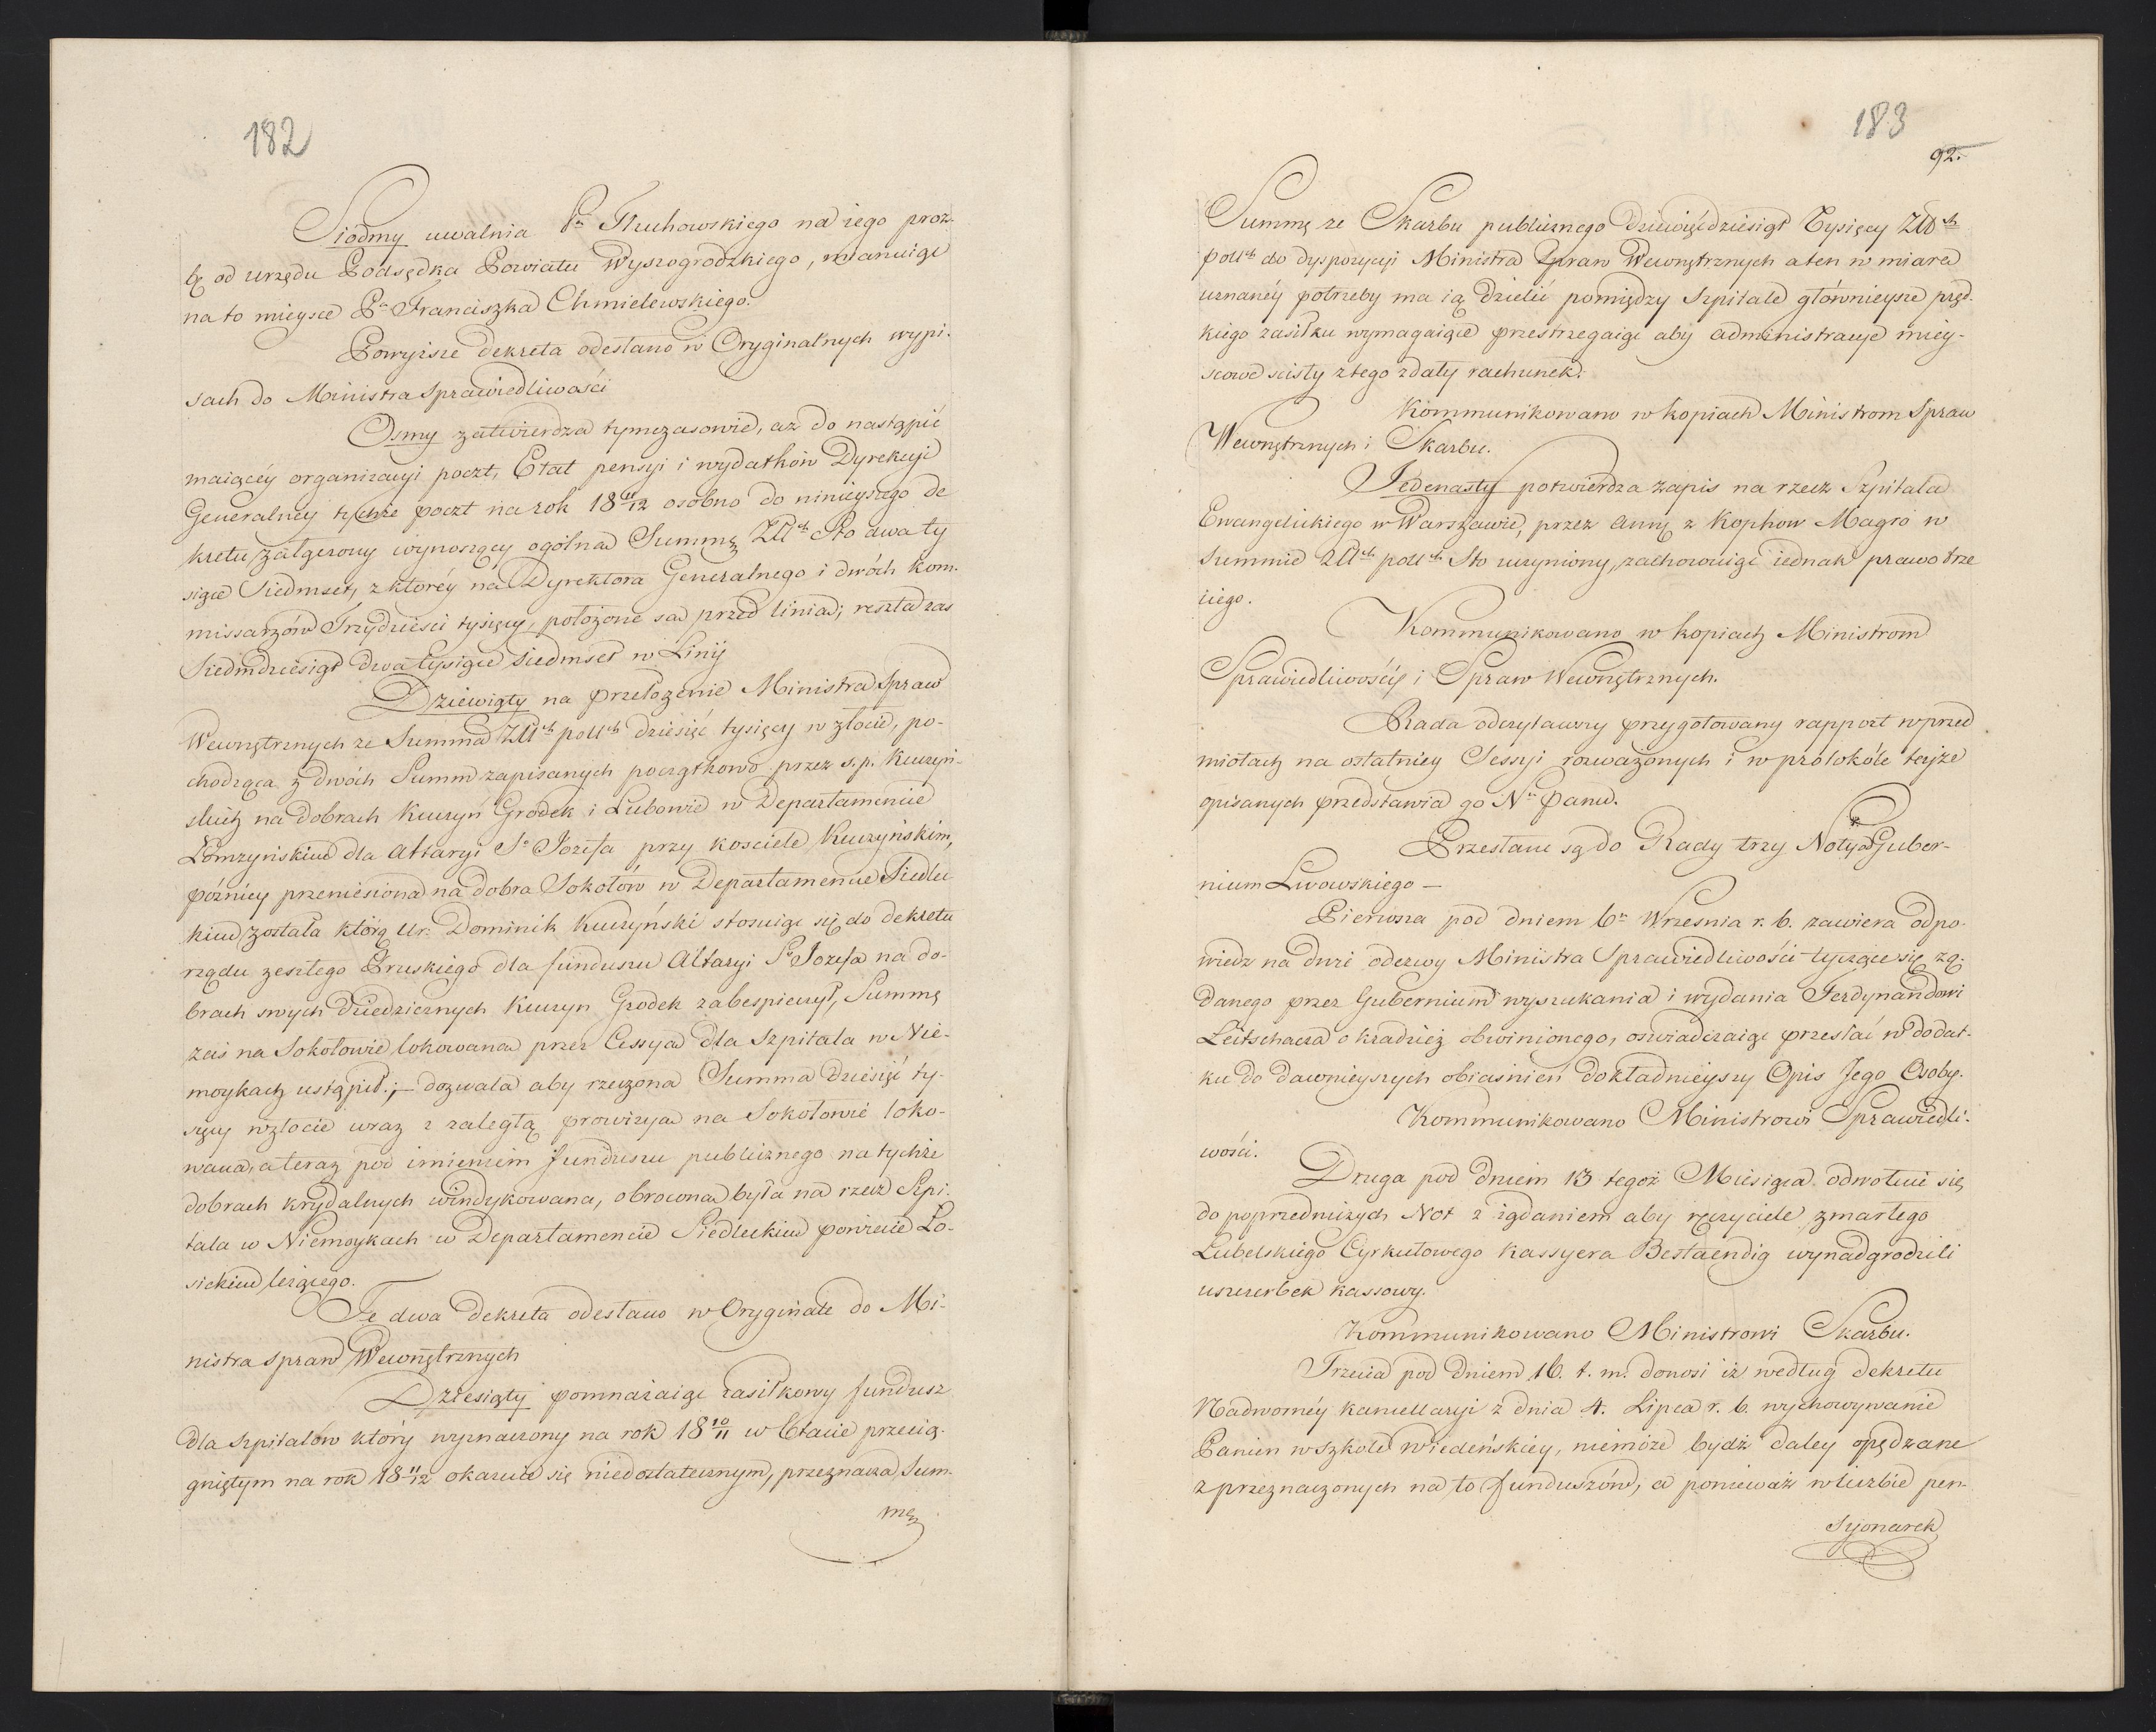 182
Siodmy uwalnia Pa Tłuchowskiego na iego proź-
bę od urzędu Podsędka Powiatu Wyszogrodzkiego, mianuiąc
na to mieysce Pa Franciszka Chmielewskiego.
Powyższe dekreta odesłano w Oryginalnych wypi-
sach do Ministra Sprawiedliwości
Osmy zatwierdza tymczasowie, aż do nastąpić
maiącéy organizacyi poczt, Etat pensyi i wydatków Dyrekcyi
Generalnéy tychże poczt na rok 18 11/12 osobno do ninieyszego de
kretu załączony wynoszący ogólną Summę Złłch Sto dwa ty
siące Siedmset, z któréy na Dyrektora Generalnego i dwóch kom-
missarzów Trzydzieści tysięcy, położone są przed linią; reszta zas
Siedmdziesiąt dwa tysiące siedmset w Linij
Dziewiąty na przełożenie Ministra Spraw
Wewnętrznych ze Summa Złłch pollch dziesięć tysięcy w złocie, po-
chodząca z dwóch Summ zapisanych początkowo przez s.p. Kuczyń-
skich na dobrach Kuczyń Grodek i Lubowie w Departamencie
Łomzyńskim dla Altaryi So Jozefa przy kosciele Kuczyńskim,
późniey przeniesiona na dobra Sokołów w Departamencie Siedlec
kim została którą Ur. Dominik Kuczyński stosuiąc się do dekretu
rządu zeszłego Pruskiego dla funduszu Altaryi So Jozefa na do-
brach swych Dziedzicznych Kuczyn Grodek zabespieczył, Summę
zaś na Sokołowie lokowaną przez Cessyą dla Szpitala w Nie-
moykach ustąpił; – dozwala aby rzeczona Summa Dziesięć ty-
sięcy w złocie wraz z zaległą prowizyą na Sokołowie loko-
wana, a teraz pod imieniem funduszu publicznego na tychże
dobrach krydalnych windykowana, obrocona była na rzecz Szpi-
tala w Niemoykach w Departamencie Siedleckim powiecie Ło-
sickim leżącego.
Te dwa Dekreta odesłano w Oryginale do Mi-
nistra Spraw Wewnętrznych
Dziesiąty pomnażaiąc zasiłkowy fundusz
dla szpitalów który wyznaczony na rok 18 10/11 w Etacie przecią-
gniętym na rok 18 11/12 okazuie się niedostatecznym, przeznacza Sum-
mę
183
92.
Summę ze Skarbu publicznego Dziewięćdziesiąt Tysięcy Złłch
pollch do dyspozycyi Ministra Spraw Wewnętrznych a ten w miarę
uznanéy potrzeby ma ią dzielić pomiędzy szpitale głównieysze pręd-
kiego zasiłku wymagaiące przestrzegaiąc aby administracye miey-
scowe scisły z tego zdały rachunek.
Kommunikowano w kopiach Ministrom Spraw
Wewnętrznych i Skarbu.
Jedenasty potwierdza zapis na rzecz Szpitala
Ewangelickiego w Warszawie, przez Annę z Kophow Magro w
Summie Złłch pollch Sto uczyniony, zachowuiąc iednak prawo trze
ciego.
Kommunikowano w kopiach Ministrom
Sprawiedliwości i Spraw Wewnętrznych.
Rada odczytawszy przygotowany rapport w przed
miotach na ostatniey Sessyi rozważonych i w protokóle teyże
opisanych przedstawia go No Panu.
Przesłane są do Rady trzy Noty Guber-
nium Lwowskiego —
Pierwsza pod dniem 6m Wrzesnia r. b. zawiera odpo-
wiedz na dwie odezwy Ministra Sprawiedliwości tyczące się żą-
danego przez Gubernium wyszukania i wydania Ferdynandowi
Leitschacza o kradzież obwinionego, oswiadczaiąc przesłać w dodat-
ku do dawnieyszych obiaśnień dokładnieyszy Opis Jego Osoby.
Kommunikowano Ministrowi Sprawiedli-
wości.
Druga pod dniem 13 tegoż Miesiąca odwołuie się
do poprzedniczych Not z żądaniem aby ręczyciele zmarłego
Lubelskiego Cyrkułowego Kassyera Bestaendig wynadgrodzili
uszczerbek kassowy.
Kommunikowano Ministrowi Skarbu.
Trzecia pod Dniem 16. t. m. donosi iż według dekretu
Nadwornéy kancellaryi z dnia 4. Lipca r. b. wychowywanie
Panien w szkole Wiedeńskiéy, niemoże bydź daley opędzane
z przeznaczonych na to funduszów, a ponieważ w liczbie pen-
syonarek